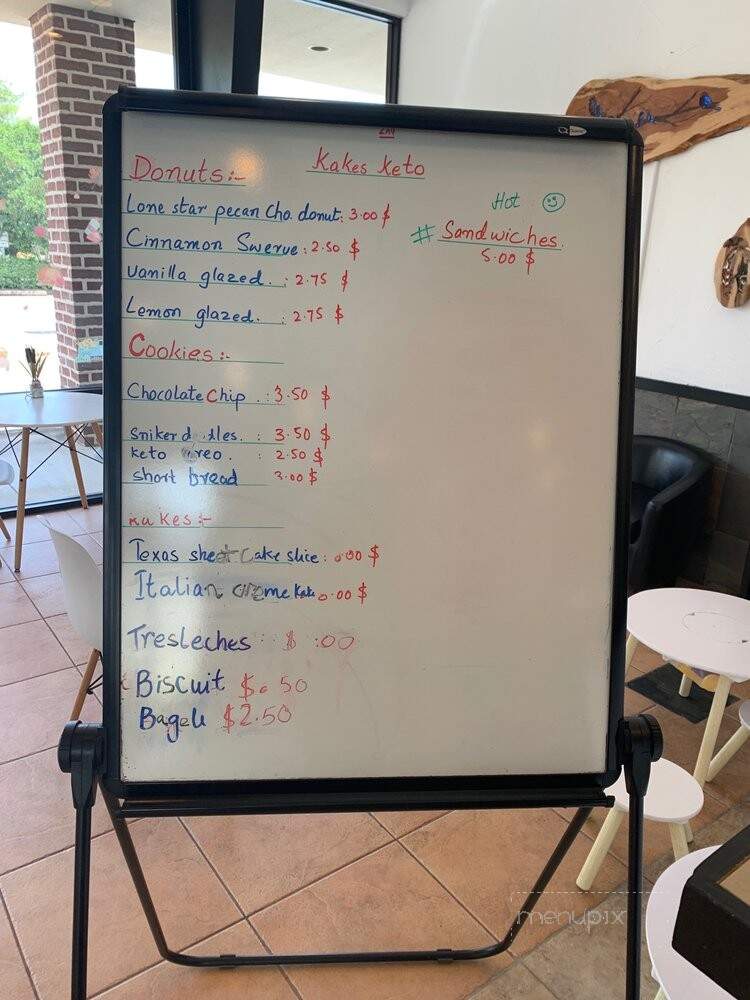 Kakes Keto
Donuts:-
Lone star pecan Cho. donut: 3.00 $
Cinnamon Swerve: 2.50 $
Vanilla glazed. : 2.75 $
Lemon glazed. : 2.75 $
Cookies:-
Chocolate chip . : 3.50 $
: 3.50 $
keto . : 2.50 $
short bread 3.00 $
Kakes:-
Texas sheet Cake slice: .00 $
Italian Kake .00 $
Tresleches $ :00
Biscuit $ . 50
Bagels $2.50
Hot
# Sandwiches.
5.00 $
menupix